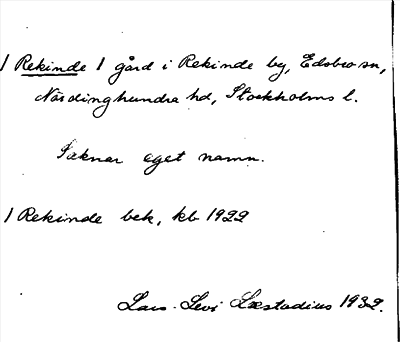 1 Rekinde 1 gård i Rekinde by, Edsbro sn,
Närdinghundra hd, Stockholms l.
Saknar eget namn.
1 Rekinde bek, kb 1922
Lars-Levi Læstadius 1932.